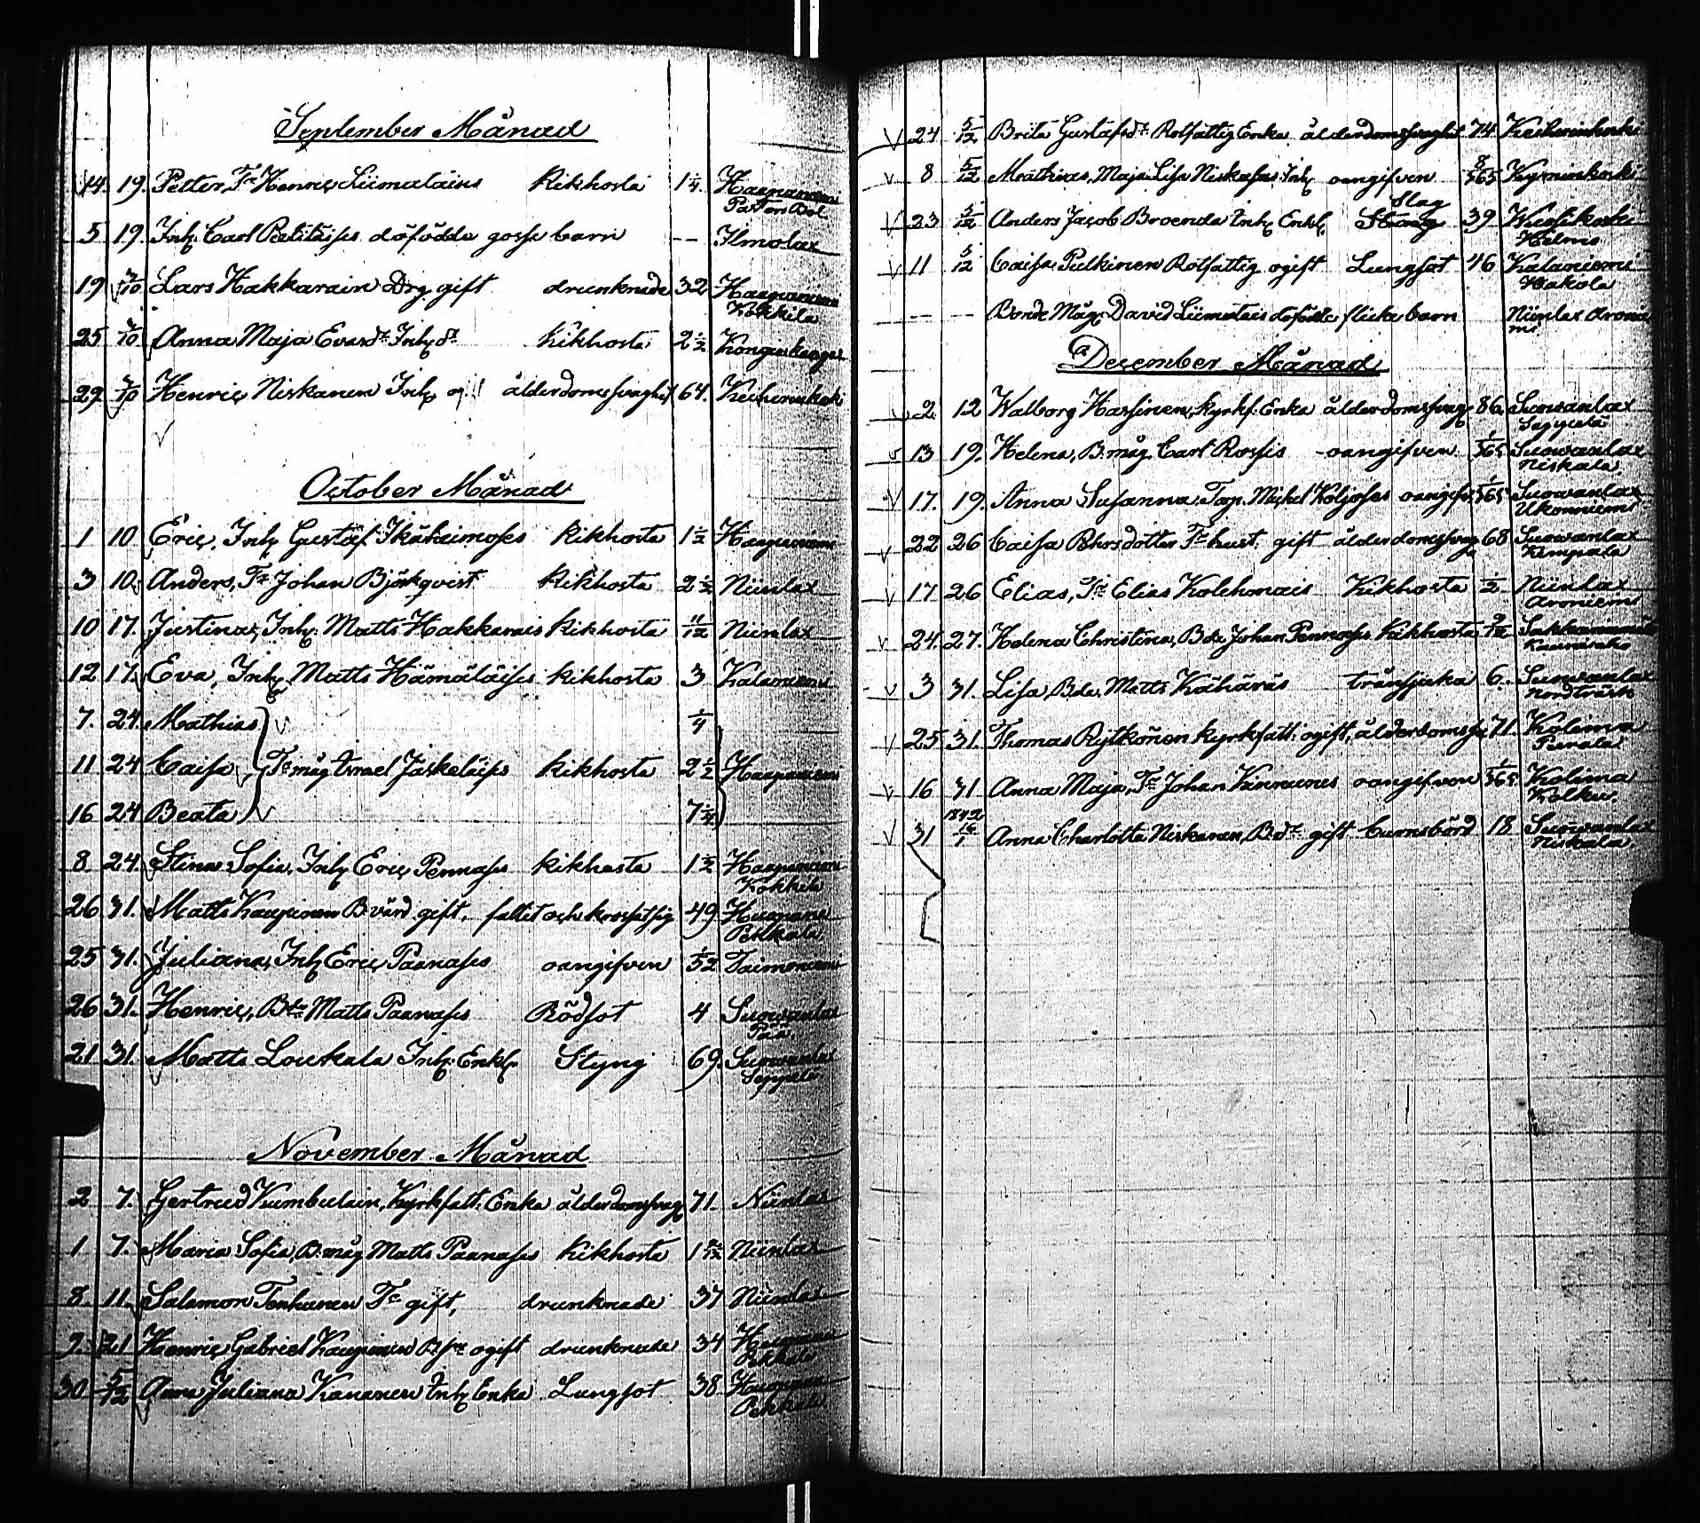 September Månad
14. 19. Petter, Tr Henric Liimatäises Kikhosta 1 1/4. Haapaniemi
5 19. Inh: Carl Pulitäises döfödde gosse barn — Ilmolax
19 2/10 Lars Hakkarain Drg gift drunknade 32 Haapaniemi
Kokkila
25 2/10 Anna Maja Evasdr Inh dr Kikhosta 2 1/2 Konginkangas
29 2/10 Henric Niskanen Inh ålderdomssvaghet 64. Keihärinkoski
October Månad
1 10 Eric, Inh Gustaf Ikäheimoses Kikhosta 1 1/2 Haapaniemi
3 10. Anders, Tr Johan Björkqvist Kikhosta 2 1/2 Niinlax
10 17. Justina, Inh: Matts Hakkarais Kikhosta 11/12 Niinlax
12 17. Eva, Inh Matts Hämäläises Kikhosta 3 Kalaniemi
7. 24. Mathias 1/4
11 24 Caisa Tr måg Israel Jäskeläises Kikhosta 2 1/2 Haapaniemi
16 24 Beata 7 1/4
8 24. Stina Sofia, Inh Eric Pennases Kikhosta 1 1/2 Haapaniemi
Kokkila
26 31. Matts Kaupinen B.värd gift, fallit och krossat sig 49 Haapaniemi
Pekkala
25 31. Juliana, Inh Eric Paanases oangifven 1/52 Taimoniemi
26 31. Henric, Bde Matts Paanases Rödsot 4 Suowanlax
Pää
21 31. Matts Loukala Inh: Enkl. Styng 69. Suowanlax
Seppälä
November Månad
2 7. Gertrud Kumbulain, Kyrkfatt. Enka ålderdomssvag 71. Niinlax
1. 7. Maria Sofia, B.måg Matts Paanases Kikhosta 1 2/12 Niinlax
8. 11. Salomon Tenhunen Tr gift, drunknade 37 Niinlax
9. 21 Henric Gabriel Kaupinen ogift drunknade 34 Haapaniemi
Pekkala
30 5/12 Anna Juliana Kananen Inh Enka Lungsot 38 Haapaniemi
Pekkala
24 5/12 Brita Gustafsdr Rotfattig Enka ålderdomssvaghet 74 Keihärinkoski
8 5/12 Mathias, Maja Lisa Niskases Inh oangifven 8/365 Kyminkoski
23 5/12 Anders Jacob Broenda Inh Enkl Slag 39 Wuoskoski
Helmo
11 5/12 Caisa Pulkinen Rotfattig ogift Lungsot 46 Kalaniemi
Hakola
— — Bonde Måg David Liimatais döfödda flicka barn Niinlax Aronie
mi
December Månad
2 12 Walborg Hassinen, Kyrkf: Enka ålderdomssvag 86. Suowanlax
Seppälä
13 19. Helena, B.måg Carl Rossis oangifven 1/365 Suowanlax
Niskala
17. 19. Anna Susanna, Torp. Michel Koljoses oangifv 1/365 Suowanlax
Ukonniemi
22 26 Caisa Pehrsdotter Tr hust. gift ålderdomssvag 68 Suowanlax
Kimpala
17 26 Elias, Tr Elias Kolehmais Kikhosta 1/2 Niinlax
Aroniemi
24. 27. Helena Christina, Bde Johan Pennases Kikhosta 2/12
3 31. Lisa, Bde. Matts Kähäräs trånsjuka 6. Suowanlax
Nordträsk
25 31. Thomas Rytkönen Kyrkfatt: ogift, ålderdomssv 71. Kolima
Purala
16 31 Anna Maja, Tr Johan Kinnunes oangifven 1/365 Kolima
Kolku.
31 1842 16/1 Anna Charlotta Niskanen, B.dr gift barnsbörd 18 Suowanlax
Niskala